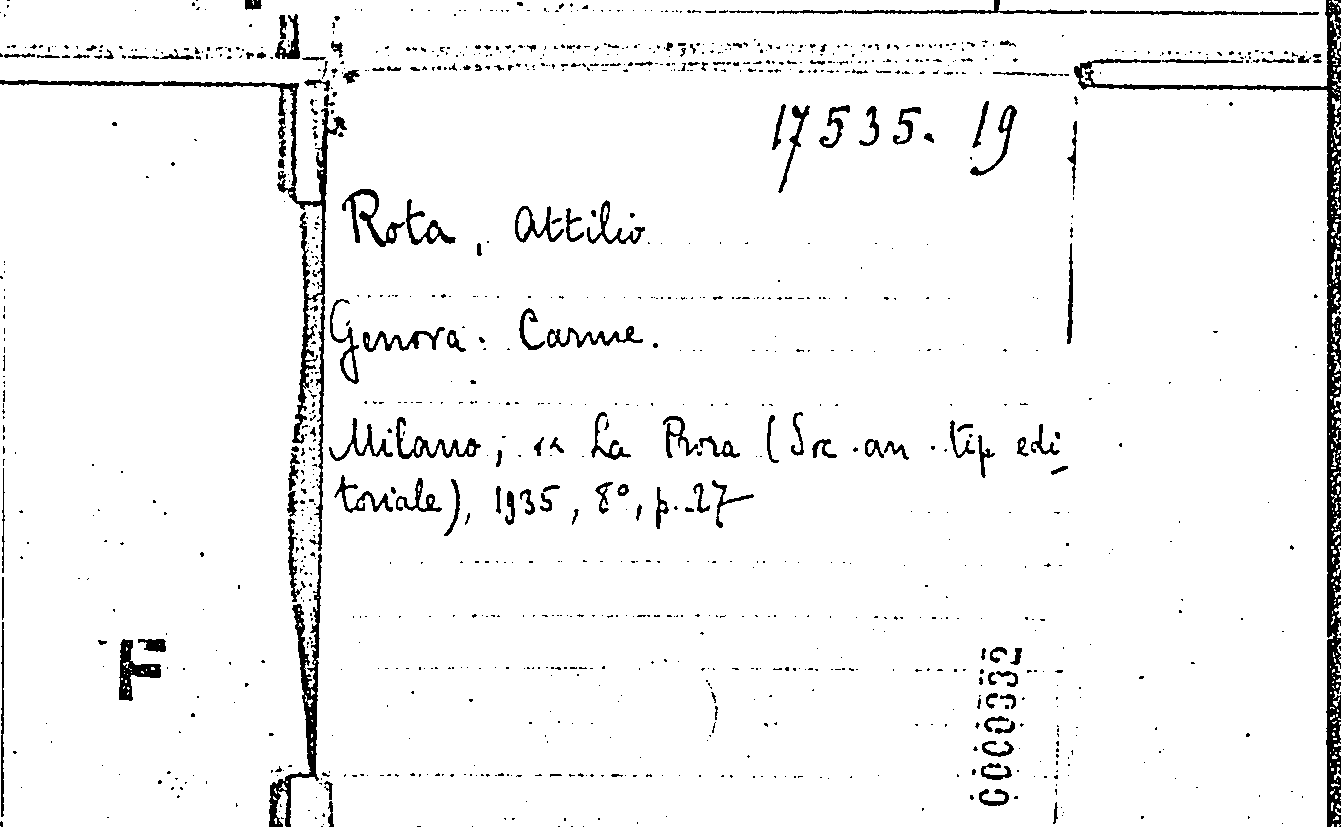 17535. 19
Rota, Attilio
Genova. Carme.
Milano, « La Prora (Soc. an. tip edi
toriale), 1935, 8°, p. 27
F
0000332